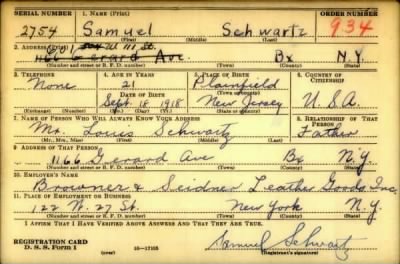 SERIAL NUMBER 1. NAME (Print) ORDER NUMBER
2754 Samuel Schwartz 934
(First) (Middle) (Last)
601 W 111 St.
2. ADDRESS (Print)
1166 Gerard Ave. Bx N.Y.
(Number and street or R. F. D. number) (Town) (County) (State)
3. TELEPHONE 4. AGE IN YEARS 5. PLACE OF BIRTH 6. COUNTRY OF CITIZENSHIP
None 21 Plainfield
DATE OF BIRTH (Town or county)
Sept. 18 1918 New Jersey U.S.A.
(Exchange) (Number) (Mo.) (Day) (Yr.) (State or country)
7. NAME OF PERSON WHO WILL ALWAYS KNOW YOUR ADDRESS 8. RELATIONSHIP OF THAT PERSON
Mr. Louis Schwartz Father
(Mr., Mrs., Miss) (First) (Middle) (Last)
9. ADDRESS OF THAT PERSON
1166 Gerard Ave Bx N.Y.
(Number and street or R. F. D. number) (Town) (County) (State)
10. EMPLOYER'S NAME
Browner & Seidner Leather Goods, Inc.
11. PLACE OF EMPLOYMENT OR BUSINESS
122 W. 27 St. New York N.Y.
(Number and street or R. F. D. number) (Town) (County) (State)
I AFFIRM THAT I HAVE VERIFIED ABOVE ANSWERS AND THAT THEY ARE TRUE.
REGISTRATION CARD
D. S. S. Form 1 16—17105 Samuel Schwartz
(Registrant's signature)